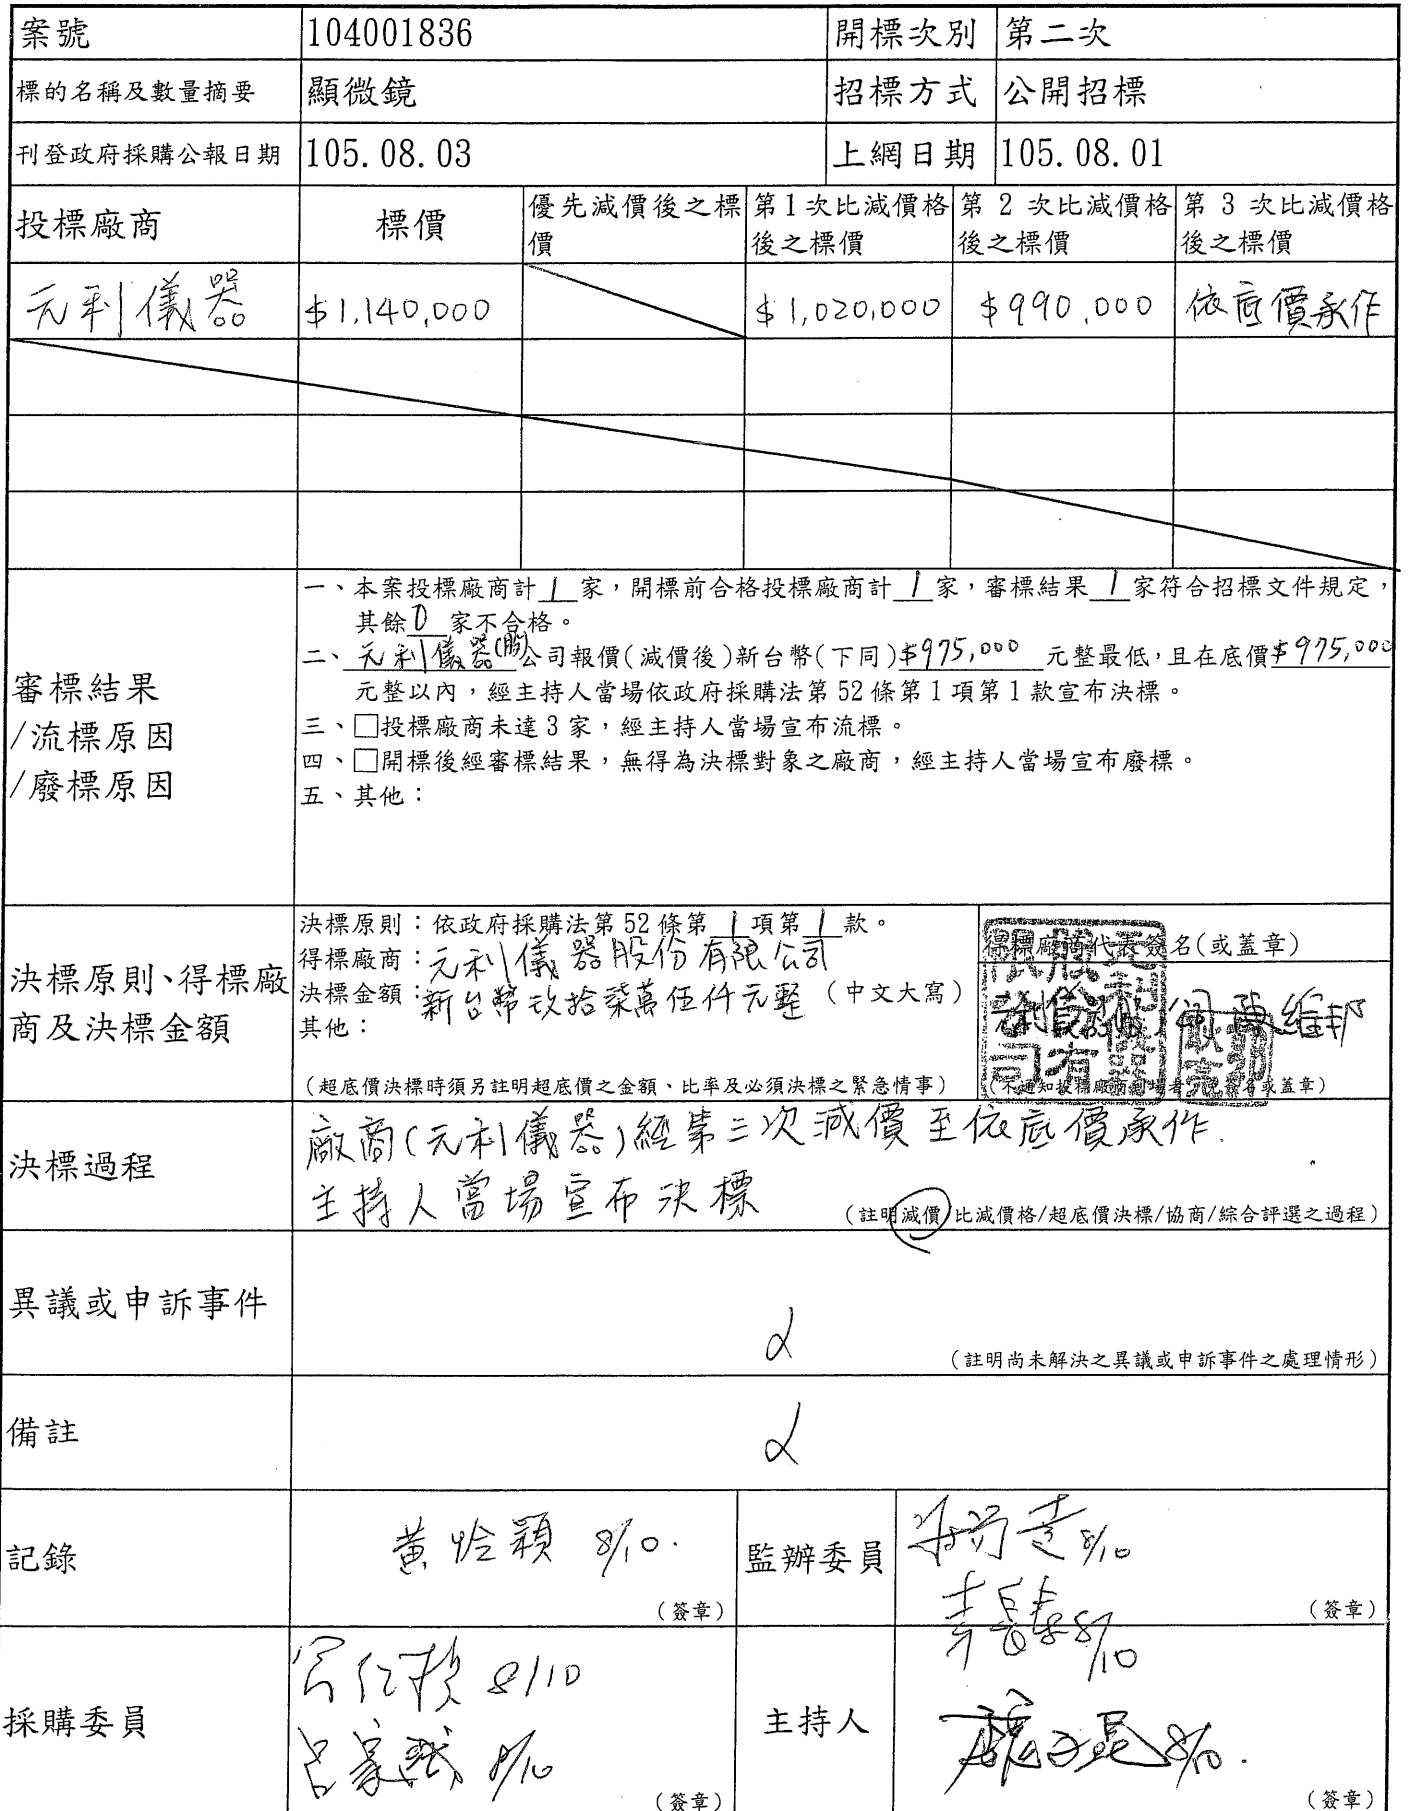 案號 104001836 開標次別 第二次
標的名稱及數量摘要 顯微鏡 招標方式 公開招標
刊登政府採購公報日期 105.08.03 上網日期 105.08.01
投標廠商 標價 優先減價後之標價 第1次比減價格後之標價 第 2 次比減價格後之標價 第 3 次比減價格後之標價
元利儀器 $1,140,000 $1,020,000 $990,000 依底價承作
審標結果
/流標原因
/廢標原因
一、本案投標廠商計1家，開標前合格投標廠商計1家，審標結果1家符合招標文件規定，
其餘0家不合格。
二、元利儀器(股)公司報價(減價後)新台幣(下同)$975,000元整最低，且在底價$975,000
元整以內，經主持人當場依政府採購法第52條第1項第1款宣布決標。
三、□投標廠商未達3家，經主持人當場宣布流標。
四、□開標後經審標結果，無得為決標對象之廠商，經主持人當場宣布廢標。
五、其他：
決標原則、得標廠
商及決標金額
決標原則：依政府採購法第52條第1項第1款。
得標廠商：元利儀器股份有限公司
決標金額：新台幣玖拾柒萬伍仟元整（中文大寫）
其他：
（超底價決標時須另註明超底價之金額、比率及必須決標之緊急情事）
得標廠商代表簽名(或蓋章)
維邦
決標過程
廠商(元利儀器)經第三次減價至依底價承作.
主持人當場宣布決標
（註明減價/比減價格/超底價決標/協商/綜合評選之過程）
異議或申訴事件
（註明尚未解決之異議或申訴事件之處理情形）
備註
記錄 黃怜穎 8/10.
（簽章）
監辦委員 8/10
8/10
（簽章）
採購委員 8/10
8/10
（簽章）
主持人 8/10.
（簽章）